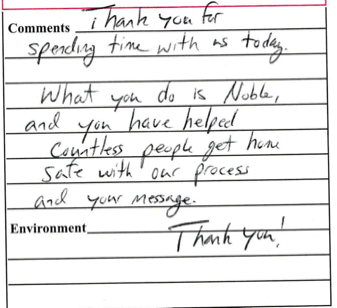 Comments Thank you for
spending time with us today.
What you do is Noble,
and you have helped
Countless people get home
safe with our process
and your message.
Environment
Thank you!